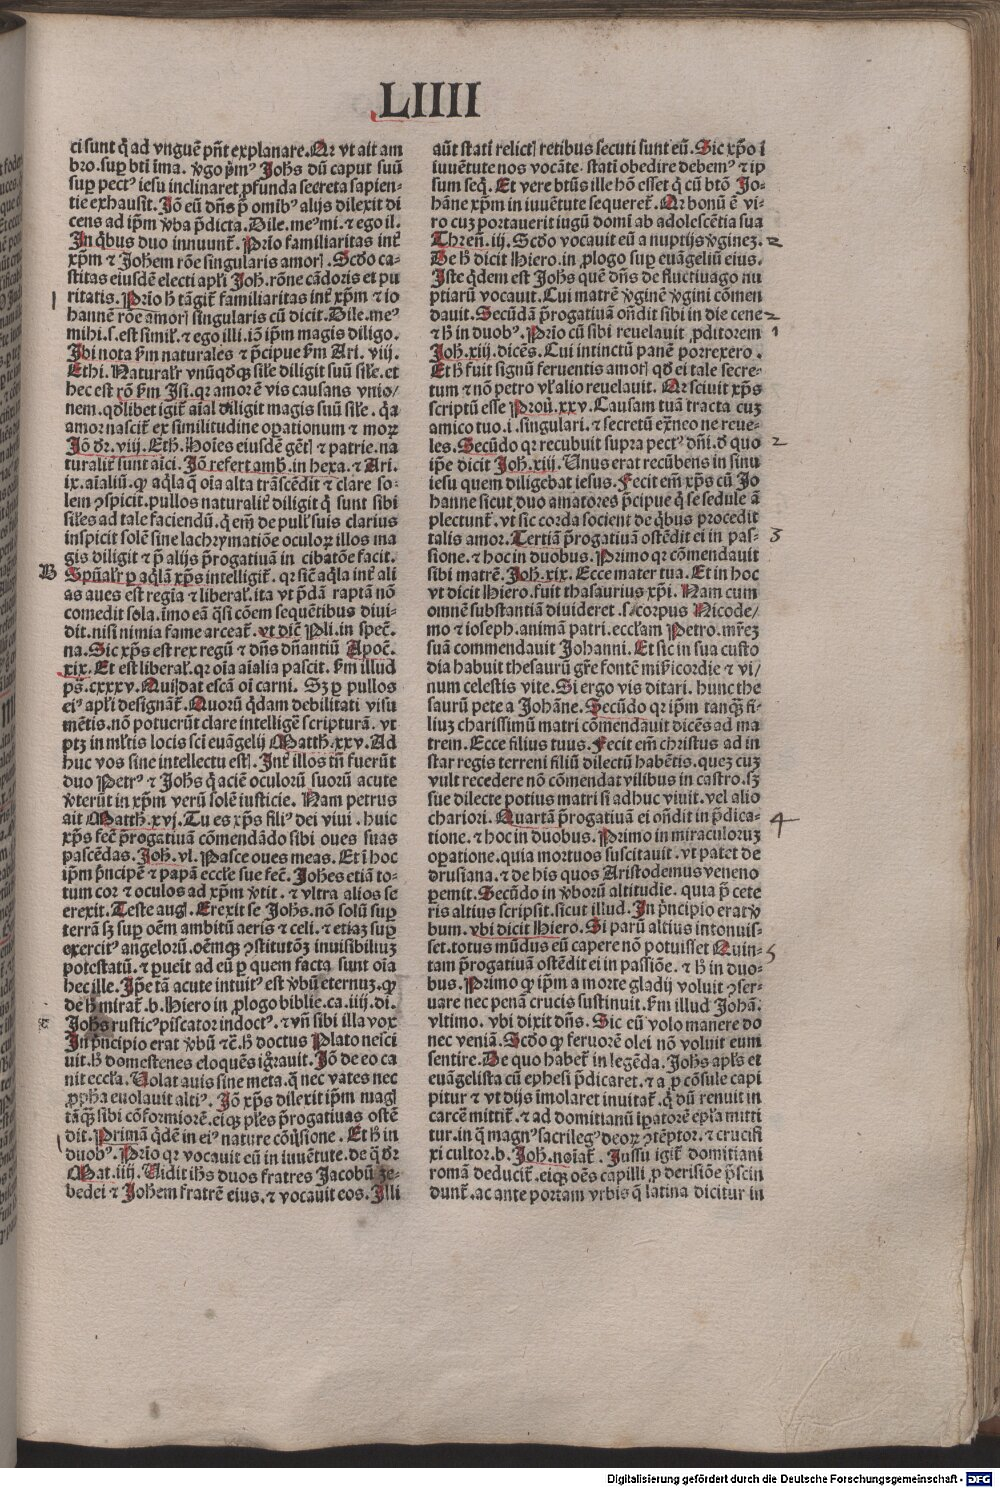 LIIII
ci sunt q̄ ad vnguē pñt explanare. Ar vt ait am
bro. suꝑ bti īma. v̄go pͥmꝰ Johs dū caput suū
suꝑ pectꝰ iesu inclinaret ꝓfunda secreta sapien-
tie exhausit. Jō eū dñs p̄ omibꝰ alijs dilexit di
cens ad ip̄m v̄ba p̄dicta. Dile. meꝰ mi. ⁊ ego il.
In qͥbus duo innuunt̄. Prīo familiaritas int̄
xp̄m ⁊ Johem rōe singularis amorꝭ. Scd̄o ca-
stitas eiusdē electi apl̄i Joh. rōne cādoris et pu
ritatis. Prīo h̄ tāgit̄ familiaritas int̄ xp̄m ⁊ io
hannē rōe amorꝭ singularis cū dicit. Dile. meꝰ
mihi. s. est simil̄. ⁊ ego illi. iō ip̄m magis diligo.
Ibi nota ẜm naturales ⁊ p̄cipue ẜm Ari. viij.
Ethi. Naturalr̄ vnūqd̄qꝫ sil̄e diligit suū sil̄e. et
hec est rō ẜm Isi. qr amorē vis causans vnio/
nem. qd̄libet igit̄ aīal diligit magis suū sil̄e. qͥa
amor nascit̄ ex similitudine oꝑationum ⁊ moꝝ
Jō dr̄. viij. Eth. Hoīes eiusdē gēt̄ꝭ ⁊ patrie. na
turalit̄ sunt aīci. Jō refert amb̄. in hexa. ⁊ Ari.
ix. aīaliū. ꝙ aqͥla q̄ oīa alta trāscēdit ⁊ clare so-
lem ꝯspicit. pullos naturalit̄ diligit q̄ sunt sibi
sil̄es ad tale faciendū. q̄ em̄ de pull̄ suis clarius
inspicit solē sine lachrymatiōe oculoꝝ illos ma
gis diligit ⁊ p̄ alijs p̄rogatiuā in cibatōe facit.
B Spūalr̄ ꝑ aqͥlā xp̄s intelligit̄. qr sic̄ aqͥla int̄ ali
as aues est regia ⁊ liberal̄. ita vt p̄dā raptā nō
comedit sola. īmo eā qͣsi cōem sequētibus diui-
dit. nisi nimia fame arceat̄. vt dic̄ Pli. in spec̄.
na. Sic xp̄s est rex regū ⁊ dñs dñantiū Apoc̄.
xix. Et est liberal̄. qr oīa aīalia pascit. ẜm illud
ps̄. cxxxv. Qui dat escā oī carni. Sꝫ ꝑ pullos
eiꝰ apl̄i designāt̄. Quorū qͥdam debilitati visu
mētis. nō potuerūt clare intelligē scripturā. vt
ptꝫ in ml̄tis locis sci euāgelij Matth. xxv. Ad
huc vos sine intellectu estꝭ. Int̄ illos tn̄ fuerūt
duo Petrꝰ ⁊ Johs q̄ aciē oculorū suorū acute
v̄terūt in xp̄m verū solē iusticie. Nam petrus
ait Matth. xvj. Tu es xp̄s filiꝰ dei viui. huic
xp̄s fec̄ p̄rogatiuā cōmendādo sibi oues suas
pascēdas. Joh. vl. Pasce oues meas. Et ī hoc
ip̄m p̄ncipē ⁊ papā eccl̄e sue fec̄. Johes etiā to-
tum cor ⁊ oculos ad xp̄m v̄tit. ⁊ vltra alios se
erexit. Teste aug. Erexit se Johs. nō solū suꝑ
terrā sꝫ suꝑ oēm ambitū aeris ⁊ celi. ⁊ etiaꝫ suꝑ
exercitꝰ angelorū. oēmqꝫ ꝯstitutōꝫ inuisibiliuꝫ
potestatū. ⁊ ꝑueīt ad eū ꝑ quem facta sunt oīa
hec ille. Ip̄e tā acute intuitꝰ est v̄bū eternuꝫ. ꝙ
de h̄ mirat̄. b. Hiero in ꝓlogo biblie. ca. iiij. di.
Johs rusticꝰ piscator indoctꝰ. ⁊ vn̄ sibi illa vox
In p̄ncipio erat v̄bū ⁊c̄. h̄ doctus Plato nesci
uit. h̄ domestenes eloquēs iḡrauit. Jō de eo ca
nit eccl̄a. Volat auis sine meta. q̄ nec vates nec
ꝓph̄a euolauit altiꝰ. Jō xp̄s dilexit ip̄m magꝭ
tāqͣꝫ sibi cōformiorē. eiqꝫ pl̄es p̄rogatiuas ostē
dit. Primā qͥdē in eiꝰ nature cōqͥsione. Et h̄ in
duobꝰ. Prīo qr vocauit eū in iuuētute. de q̄ dr̄
Mat. iiij. Vidit ihs duos fratres Jacobū ze-
bedei ⁊ Johem fratrē eius. ⁊ vocauit eos. Illi
aūt statī relictꝭ retibus secuti sunt eū. Sic xp̄o ī
iuuētute nos vocāte. statī obedire debemꝰ ⁊ ip
sum seqͥ. Et vere btūs ille hō esset q̄ cū btō Jo-
hāne xp̄m in iuuētute sequeret̄. Ar bonū ē vi-
ro cuꝫ portauerit iugū domi ab adolescētia sua
Thren̄. iij. Scd̄o vocauit eū a nuptijs v̄gineꝫ. 2
De h̄ dicit Hiero. in ꝓlogo suꝑ euāgeliū eius.
Iste qͥdem est Johs quē dñs de fluctiuago nu
ptiarū vocauit. Cui matrē v̄ginē v̄gini cōmen
dauit. Secūdā p̄rogatiuā oñdit sibi in die cene 2
⁊ h̄ in duobꝰ. Prīo cū sibi reuelauit ꝓditorem 1
Joh. xiij. dicēs. Cui intinctū panē porrexero.
Et h̄ fuit signū feruentis amorꝭ qd̄ ei tale secre-
tum ⁊ nō petro vl̄ alio reuelauit. Ar sciuit xp̄s
scriptū esse Prou̇. xxv. Causam tuā tracta cuꝫ
amico tuo. i. singulari. ⁊ secretū extͣneo ne reue-
les. Secūdo qr recubuit supra pectꝰ dñi. d̄ quo 2
ip̄e dicit Joh. xiij. Unus erat recūbens in sinu
iesu quem diligebat iesus. Fecit em̄ xp̄s cū Jo
hanne sicut duo amatores p̄cipue q̄ se sedule ā
plectunt̄. vt sic corda socient de qͥbus procedit
talis amor. Tertiā p̄rogatiuā ostēdit ei in pas- 3
sione. ⁊ hoc in duobus. Primo qr cōmendauit
sibi matrē. Joh. xix. Ecce mater tua. Et in hoc
vt dicit Hiero. fuit thasaurius xp̄i. Nam cum
omnē substantiā diuideret. s. corpus Nicode/
mo ⁊ ioseph. animā patri. eccl̄am Petro. mr̄eꝫ
suā commendauit Johanni. Et sic in sua custo
dia habuit thesaurū gr̄e fontē mīꝭicordie ⁊ vi/
num celestis vite. Si ergo vis ditari. hunc the
saurū pete a Johāne. Secūdo qr ip̄m tanqͣꝫ fi-
liuꝫ charissimū matri cōmendauit dicēs ad ma
trem. Ecce filius tuus. Fecit em̄ christus ad in
star regis terreni filiū dilectū habētis. queꝫ cuꝫ
vult recedere nō cōmendat vilibus in castro. sꝫ
sue dilecte potius matri si adhuc viuit. vel alio
chariori. Quartā p̄rogatiuā ei oñdit in p̄dica- 4
tione. ⁊ hoc in duobus. Primo in miraculoruꝫ
oꝑatione. quia mortuos suscitauit. vt patet de
drusiana. ⁊ de his quos Aristodemus veneno
ꝑemit. Secūdo in v̄borū altitudīe. quia p̄ cete
ris altius scripsit. sicut illud. In p̄ncipio erat v̄
bum. vbi dicit Hiero. Si parū altius intonuis-
set. totus mūdus eū capere nō potuisset Quin- 5
tam p̄rogatiuā ostēdit ei in passiōe. ⁊ h̄ in duo-
bus. Primo ꝙ ip̄m a morte gladij voluit ꝯser-
uare nec penā crucis sustinuit. ẜm illud Johā.
vltimo. vbi dixit dñs. Sic eū volo manere do
nec veniā. Scd̄o ꝙ feruorē olei nō voluit eum
sentire. De quo habet̄ in legēda. Johs apl̄s et
euāgelista cū ephesi p̄dicaret. ⁊ a ꝓcōsule capi
pitur ⁊ vt dijs īmolaret inuitat̄. q̄ dū renuit in
carcē mittit̄. ⁊ ad domitianū īꝑatorē epl̄a mitti
tur. in q̄ magnꝰ sacrilegꝰ deoꝝ ꝯtēptor. ⁊ crucifi
xi cultor. b. Joh. noīat̄. Jussu igit̄ domitiani
romā deducit̄. eiqꝫ oēs capilli ꝓ derisiōe p̄scin
dunt̄. ac ante portam vrbis q̄ latina dicitur in
Digitalisierung gefördert durch die Deutsche Forschungsgemeinschaft - DFG